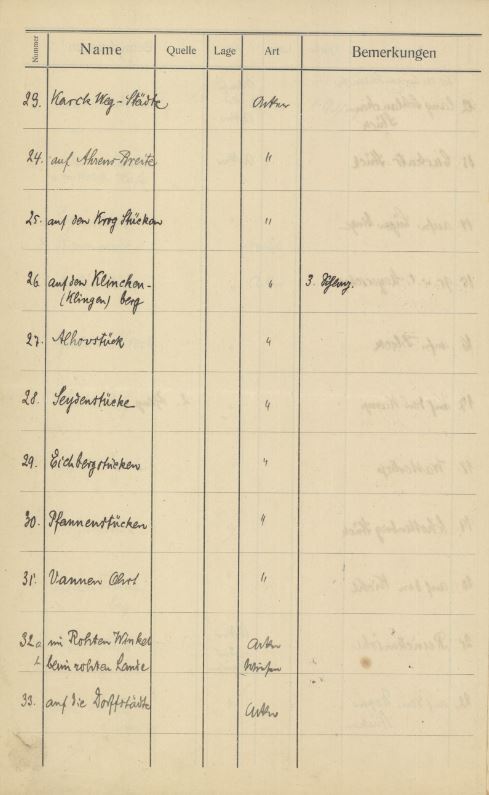 Nummer Name Quelle Lage Art Bemerkungen
23. Karch Weg-Städte Acker
24. auf Ahrens Breite "
25. auf den Krog Stücken "
26. auf den Klinchen- " 3.
(Klingen) berg
27. Alhovstück "
28. Seydenstücke "
29. Eichbergstücken "
30. Pfannenstücken "
31. Vannen Ohrt "
32a im Rohten Winkel Acker
b beim rohten Lande Wiesen
33. auf die Dorffstädte Acker